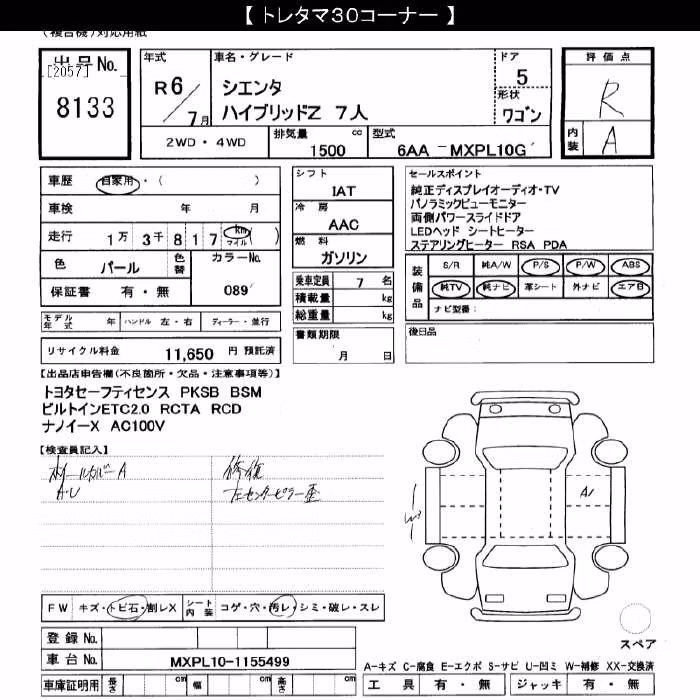 【 トレタマ30コーナー 】
(複合機)対応用紙
出品No. [2057] 8133
年式 R6/7月
車名・グレード
シエンタ
ハイブリッドZ 7人
ドア 5
形状 ワゴン
評価点 R
内装 A
2WD・4WD 排気量 1500 cc 型式 6AA-MXPL10G
車歴 自家用・( )
車検 年 月
走行 1万3千817 km マイル ( )
色 パール 色替 カラーNo. 089
保証書 有・無
モデル年式 年 ハンドル 左・右 ディーラー・並行
リサイクル料金 11,650 円 預託済
シフト IAT
冷房 AAC
燃料 ガソリン
乗車定員 7 名
積載量 kg
総重量 kg
書類期限 月 日
セールスポイント
純正ディスプレイオーディオ・TV
パノラミックビューモニター
両側パワースライドドア
LEDヘッド シートヒーター
ステアリングヒーター RSA PDA
装備品 S/R 純A/W P/S P/W ABS
純TV 純ナビ 革シート 外ナビ エアB
ナビ型番:
後日品
【出品店申告欄(不良箇所・欠品・注意事項等)】
トヨタセーフティセンス PKSB BSM
ビルトインETC2.0 RCTA RCD
ナノイーX AC100V
【検査員記入】
ホイールカバーA
A・U
修復
左センターピラー歪
A1
W3
FW キズ・トビ石・割レX シート内装 コゲ・穴・汚レ・シミ・破レ・スレ
登録No.
車台No. MXPL10-1155499
車庫証明用 長さ cm 幅 cm 高さ cm
スペア
A-キズ C-腐食 E-エクボ S-サビ U-凹ミ W-補修 XX-交換済
工具 有・無 ジャッキ 有・無